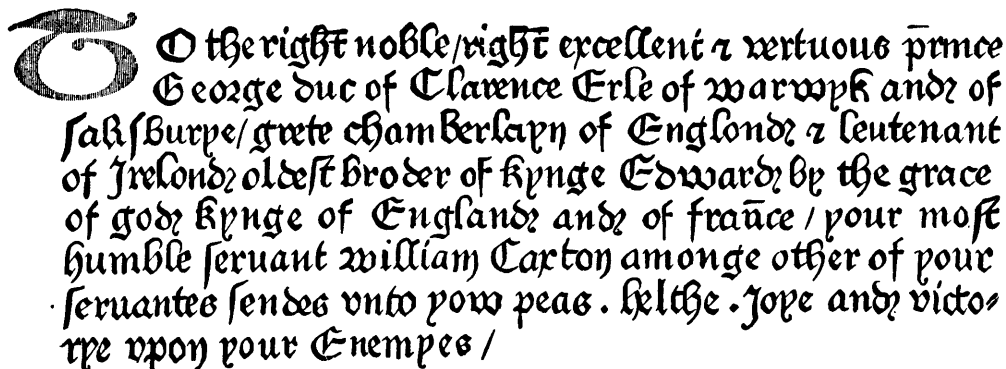 TO the right noble/right excellent ⁊ vertuous p̄rince
George duc of Clarence Erle of warwyk and of
salisburye/grete chamberlayn of Englond ⁊ leutenant
of Irelond oldest broder of kynge Edward by the grace
of god kynge of England and of fran̄ce / your most
humble seruant william Caxton amonge other of your
seruantes sendes vnto yow peas . helthe . Joye and victo-
rye vpon your Enemyes /